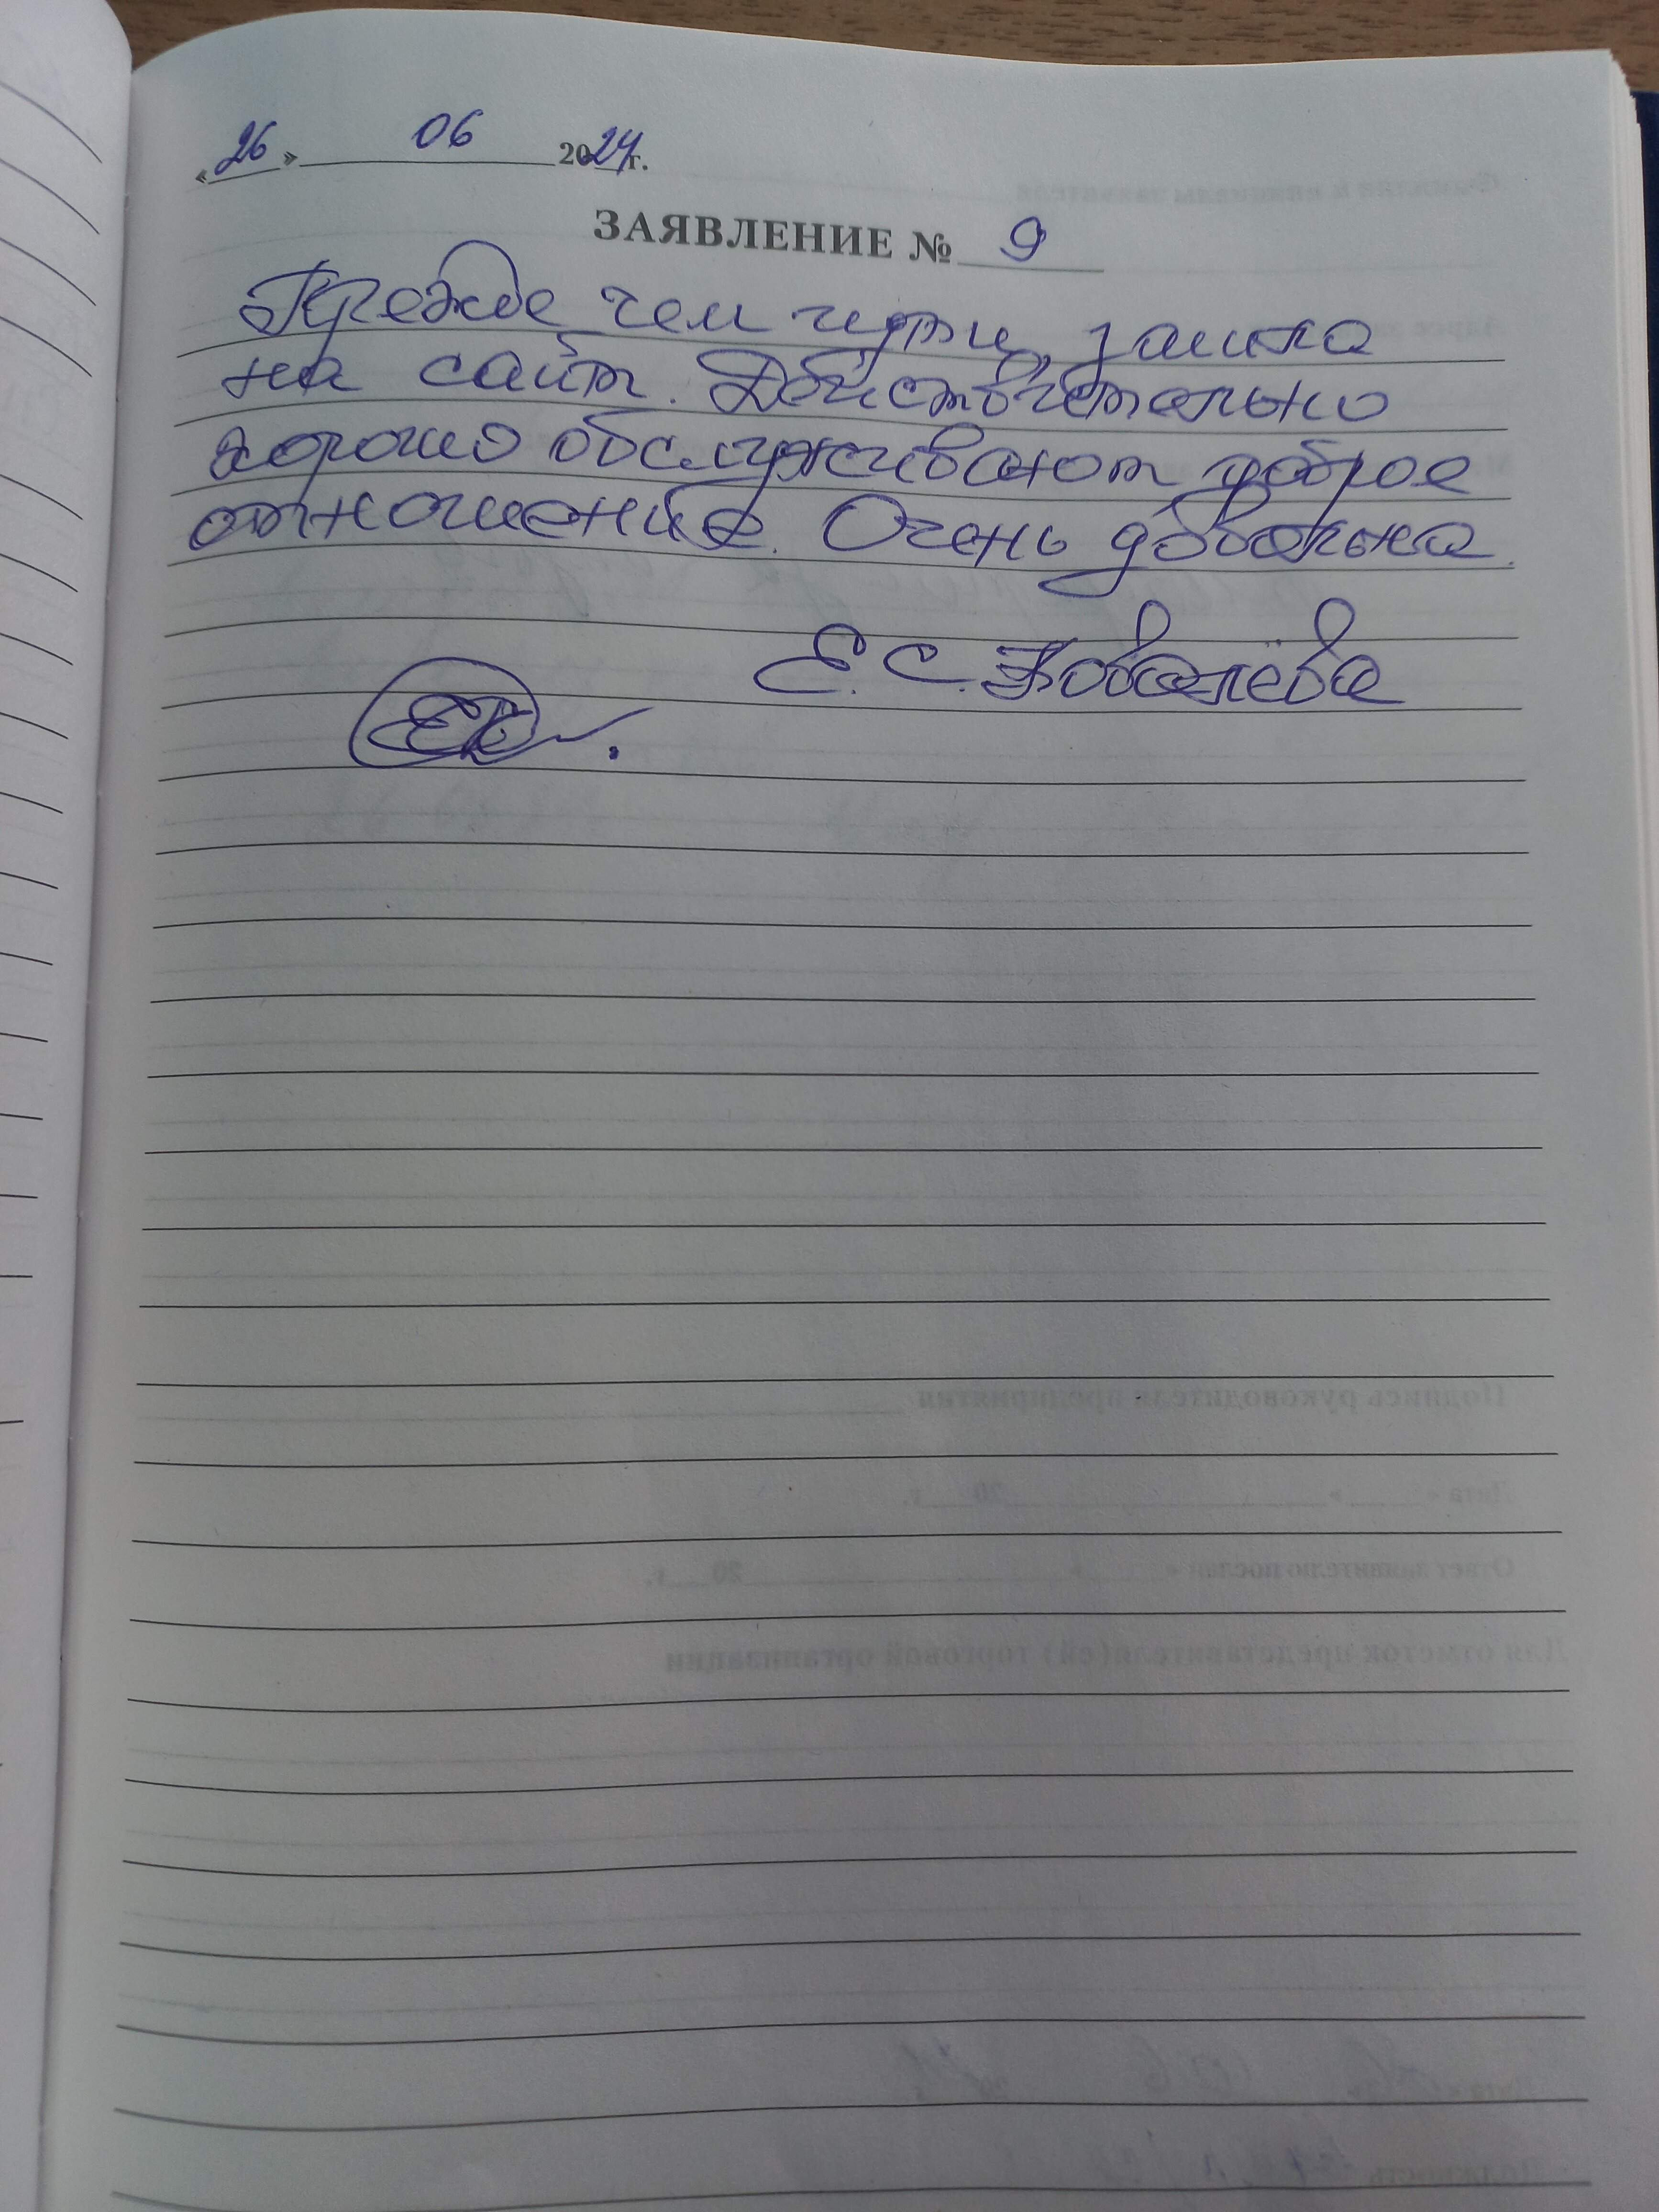 «26» 06 2024г.
ЗАЯВЛЕНИЕ № 9
Прежде чем идти, зашла
на сайт. Действительно
хорошо обслуживают доброе
отношение. Очень довольна.
Е.С. Ковалёва